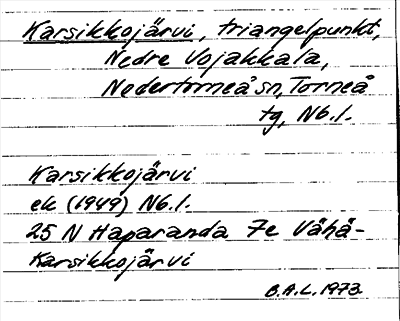 Karsikkojärvi, triangelpunkt,
Nedre Vojakkala,
Nedertorneå sn, Torneå
tg, Nb.l.
Karsikkojärvi
ek (1949) Nb.l.
25 N Haparanda 7e Vähä-
Karsikkojärvi
B.A.L. 1973